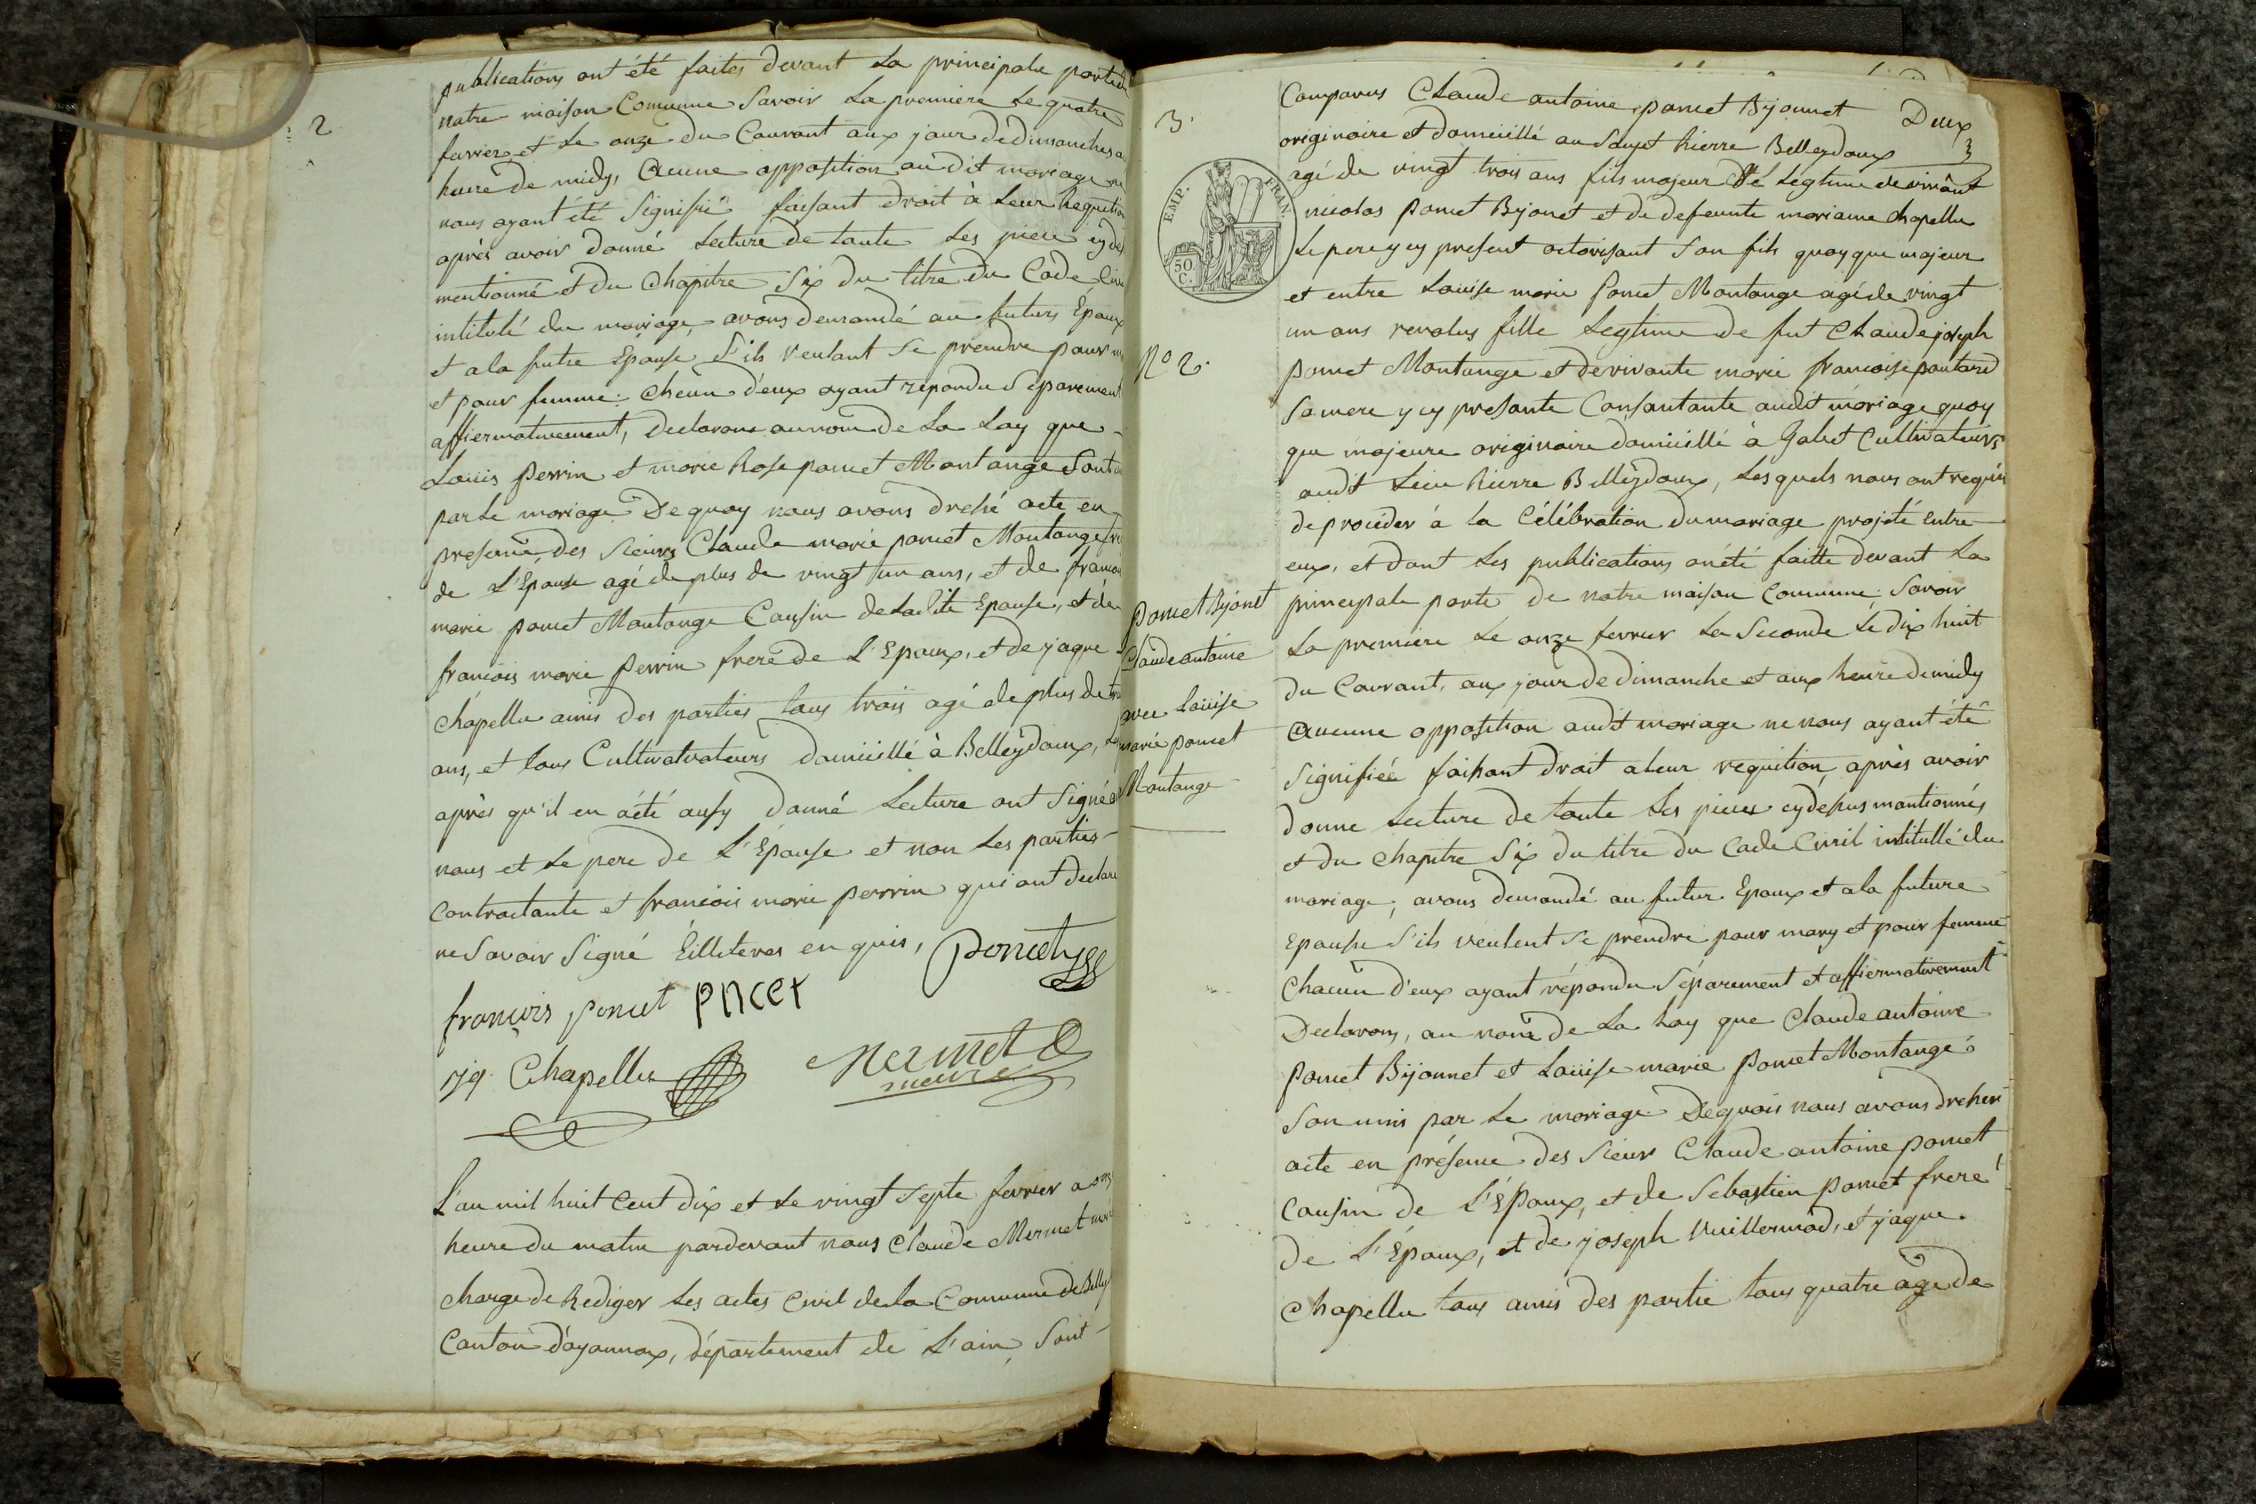 2
publications ont été faites devant La principale porte de
notre maison Comunne Savoir La premiere Le quatre
fevrier et Le onze du Courant aux jour de dimanches a
heure de midy, Aucune opposition audit mariage ne
nous ayant été Signifié faisant droit à Leur Requition
après avoir donné Lecture de toute Les piece cy des
mentionné et du Chapitre Six du titre du Code Civil
intitulé du mariage, avons demandé au futurs Epoux
et a la futre Epouse S'ils veulant Se prendre pour m
et pour femme: Checun d'eux ayant repondu Séparement
affiermativement, Declarons au nom de La Loy que
Louis Perrin et marie Rose poncet Montange Sont
par Le mariage De quoy nous avons dréhé acte en
presence des Sieurs Claude marie poncet Montange
de L'Epouse agé de plus de vingt un ans, et de francois
marie poncet Montange Cousin de Ladite Epouse, et de
francois marie perrin frere de L'Epoux, et de jaque
chapellu amis des parties tous trois agé de plus de
ans, et tous Cultivatvateurs domicillé à Belleydoux,
après qu'il en a été ausy donné Lecture ont Signé
nous et Le pere de L'Epouse et non Les parties
Contractante et francois marie perrin qui ont declaré
ne Savoir Signé Eilleteres en quis, Poncet
francois poncet PNCET
179 Chapellu Mermet
maire
L'an mil huit Cent dix et Le vingt Septe fevrier a onz
heure du matin pardevant nous Claude Mermet
charge de Rediger Les actes Civil de la Comunne de Belley
Canton d'ayonnax, département de L'ain, Sont
3.
EMP. FRAN.
50 C.
Comparus Claude antoine poncet Bijonnet Deux
originaire et domicillé au Souget hierre Belleydoux
agé de vingt trois ans fils majeur Et Legtime de vivant
nicolas poncet Bijonet et de defeunte mariane chapellu
Le pere y cy present octorisant Son fils quoy que majeur
et entre Louise marie poncet Montange agé de vingt
un ans revolus fille Legtime de fut Claude joseph
Nº 2.
poncet Montange et de vivante marie francoise poutard
Sa mere y cy presante Consantante audit mariage quoy
que majeure originaire domicillé à Gobet Cultivateurs
audit Lieu hierre Belleydoux, Les quels nous ont requis
de proceder à la Célébration du mariage projeté Entre
eux, et dont Les publications on été faitte devant La
Poncet Bijonet
Claude antoine
avec Louise
marie poncet
Montange
principale porte de notre maison Comunne: Savoir
La premiere Le onze fevrier La Seconde Le dix huit
du Courant, aux jour de dimanche et aux heure de midy
Aucune opposition audit mariage ne nous ayant été
Signifiée faihant droit a Leur requition après avoir
donne Lecture de toute Les pieces cy dehus mantionnés
et du chapitre Six du titre du Code Civil intitullé du
mariage, avons demandé au futur Epoux et a la future
Epouse S'ils veulent Se prendre pour mary et pour femme
Chacun d'eux ayant répondu Séparement et affiermativement
Declarons, au nom de La Loy que Claude antoine
Poncet Bijonnet et Louise marie poncet Montange
Son unis par Le mariage De quois nous avons drehér
acte en présence des Sieur Claude antoine poncet
Cousin de L'Epoux, et de Sebastien poncet frere
de L'Epoux, et de joseph Vuillermod, et jaque
Chapellu tous amis des partie tous quatre age de